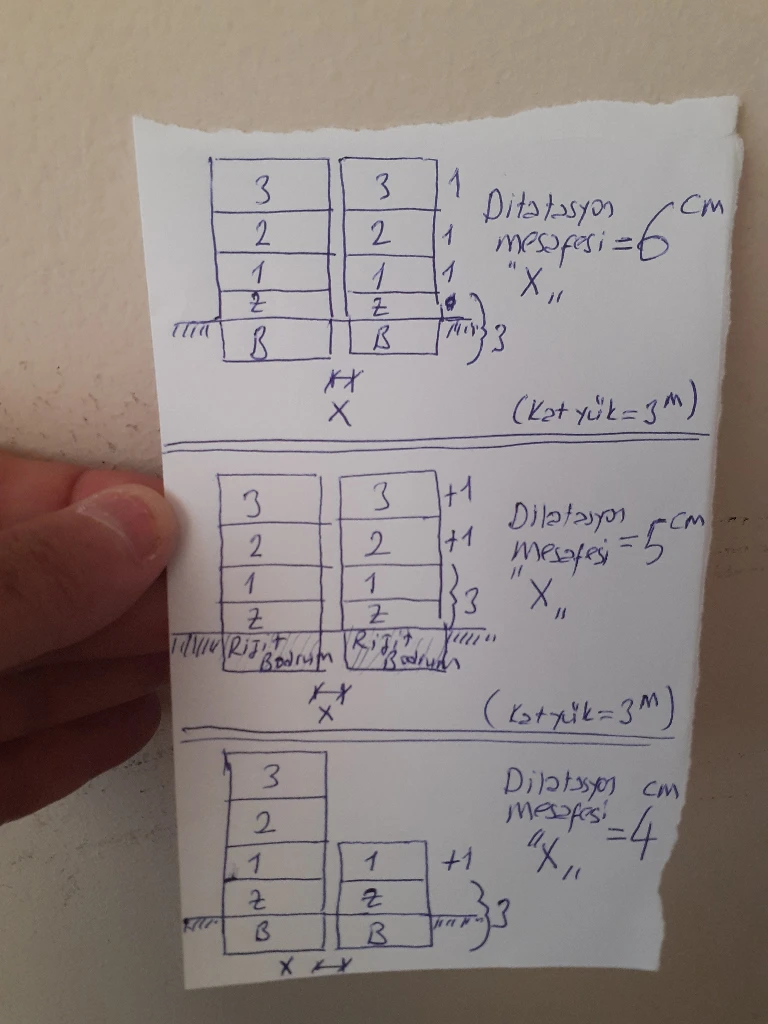 3 3 1
2 2 1
1 1 1
Z Z
B B } 3
Dilatasyon cm
mesafesi = 6
"X„
X
(Kat yük = 3 m)
3 3 +1
2 2 +1
1 1
Z Z } 3
Rijit Bodrum Rijit Bodrum
Dilatasyon cm
mesafesi = 5
"X„
X
(Kat yük = 3 m)
3
2
1 1 +1
Z Z
B B } 3
Dilatasyon cm
mesafesi = 4
"X„
X